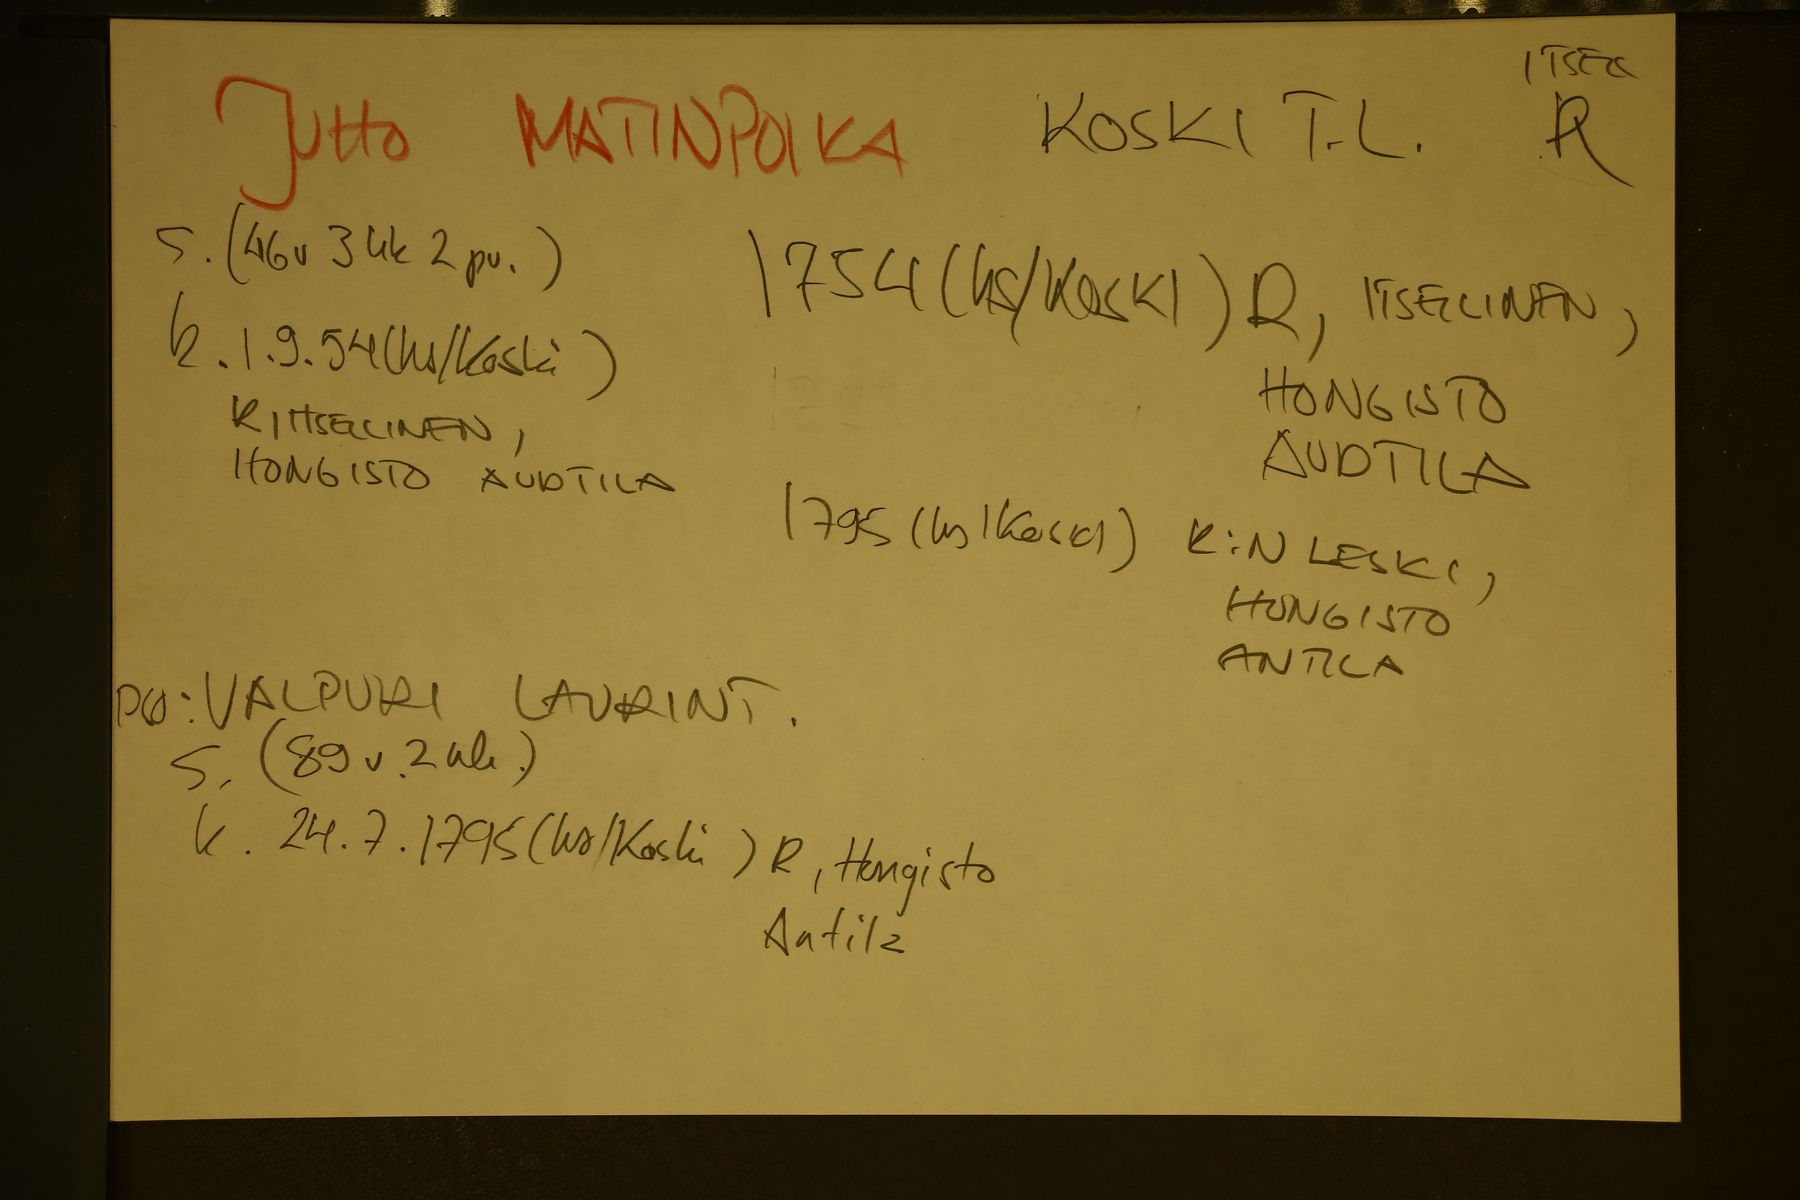 ITSELL
Jutto MATINPOIKA KOSKI T.L. R
s. (46v 3kk 2pv.)
k. 1.9.54 (hs/Koski)
R, ITSELLINEN,
HONGISTO AUDTILA
1754 (hs/KOSKI) R, ITSELLINEN,
HONGISTO
AUDTILA
1795 (hs/KOSKI) R:N LESKI,
HONGISTO
ANTILA
PSO: VALPURI LAURINT.
s. (89v. 2kk.)
k. 24.7.1795 (hs/Koski) R, Hongisto
Antila